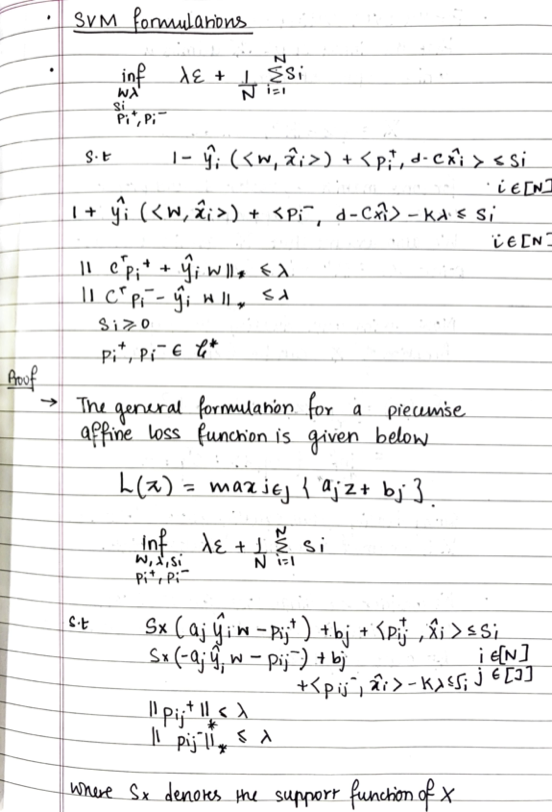 · SVM formulations
· inf λε + 1/N Σ_{i=1}^{N} Si
Wλ
Si
Pi⁺, Pi⁻
s.t 1 - ŷi (<w, x̂i>) + <pi⁺, d-Cx̂i> ≤ Si
i ∈ [N]
1 + ŷi (<w, x̂i>) + <Pi⁻, d-Cx̂i> - Kλ ≤ Si
i ∈ [N]
|| Cᵀpi⁺ + ŷi w ||* ≤ λ
|| Cᵀpi⁻ - ŷi w ||* ≤ λ
Si ≥ 0
Pi⁺, Pi⁻ ∈ C*
Proof
→ The general formulation for a piecewise
affine loss function is given below
L(z) = max j∈J { aj z + bj }.
inf λε + 1/N Σ_{i=1}^{N} Si
W, λ, Si
Pi⁺, Pi⁻
s.t Sx (aj ŷi w - Pij⁺) + bj + <Pij⁺, x̂i> ≤ Si
Sx (-aj ŷi w - Pij⁻) + bj i ∈ [N]
+ <pij⁻, x̂i> - Kλ ≤ Si j ∈ [J]
|| Pij⁺ ||* ≤ λ
|| Pij⁻ ||* ≤ λ
where Sx denotes the support function of X